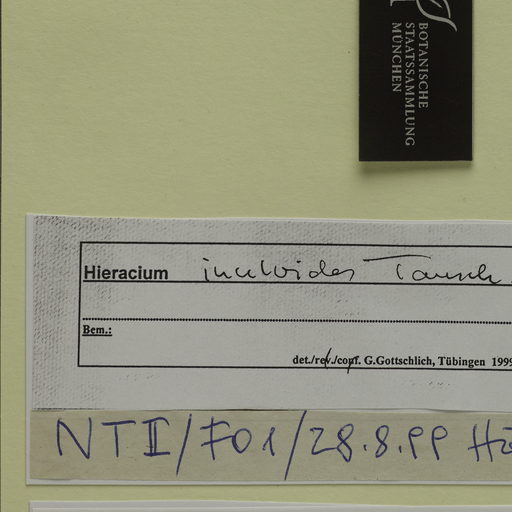 BOTANISCHE
STAATSSAMMLUNG
MÜNCHEN
Hieracium inuloides Tausch
Bem.:
det./rev./conf. G.Gottschlich, Tübingen 1999
NTII/F01/28.8.99